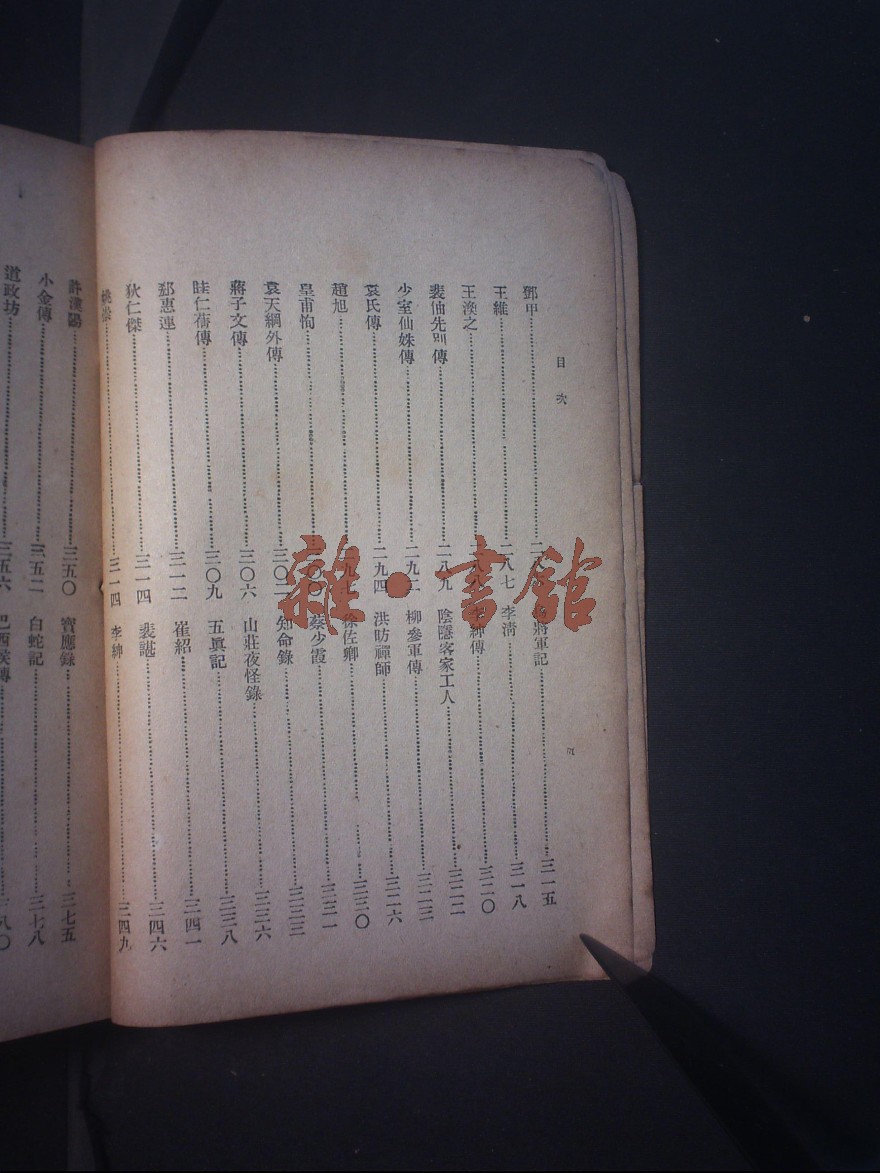 目次
鄧甲……二八
王維……二八七
王渙之……二八八
裴伷先別傳……二八九
少室仙姝傳……二九二
袁氏傳……二九四
趙旭……二九七
皇甫恂……三〇〇
袁天綱外傳……三〇二
蔣子文傳……三〇六
眭仁蒨傳……三〇九
郄惠連……三一二
狄仁傑……三一四
……三一四
將軍記……三一五
李清……三一八
李紳傳……三二〇
陰隱客家工人……三二二
柳參軍傳……三二三
洪昉禪師……三二六
徐佐卿……三三〇
蔡少霞……三三一
知命錄……三三三
山莊夜怪錄……三三六
五眞記……三三八
崔紹……三四一
裴諶……三四六
李紳……三四九
許漢陽……三五〇
小金傳……三五二
道政坊……三五六
寶應錄……三七五
白蛇記……三七八
巴西侯傳……三八〇
雜·書館